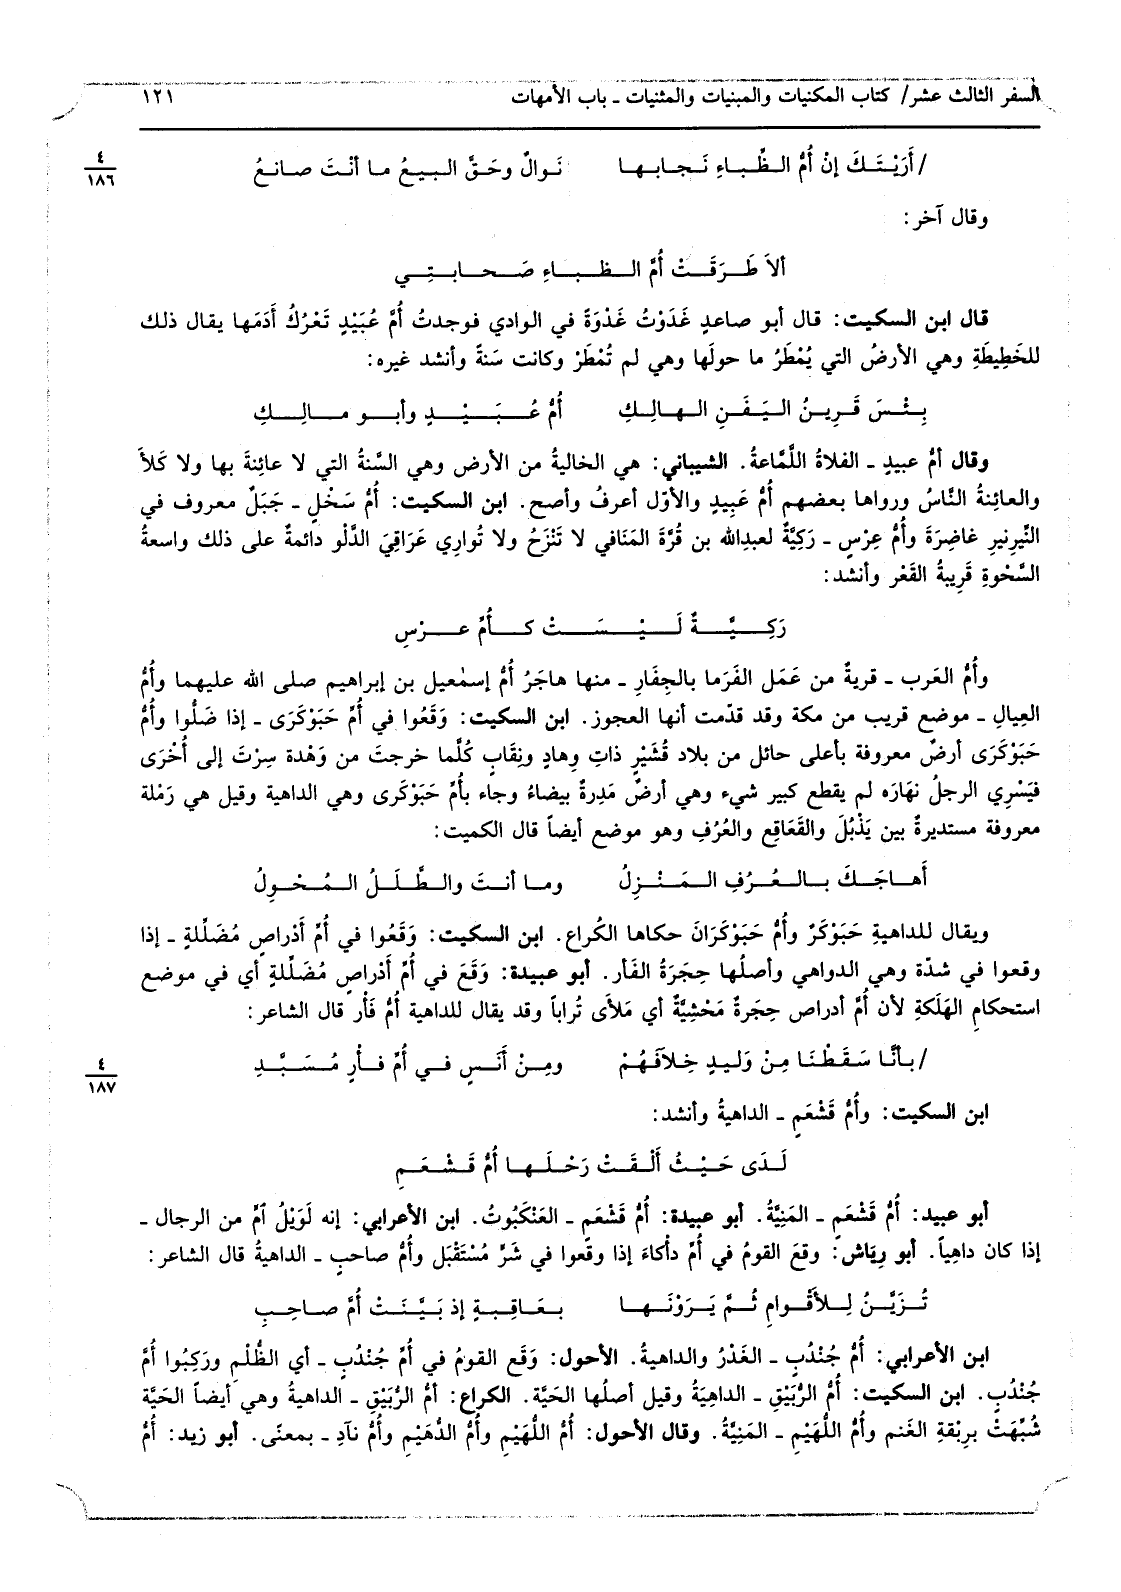 السفر الثالث عشر/ كتاب المكنيات والمبنيات والمثنيات ـ باب الأمهات ١٢١
/ أَرَيْتَكَ إنْ أُمُّ الظِّباءِ نَجابها نَوالٌ وحَقَّ البيعُ ما أنْتَ صانعُ
٤
١٨٦
وقال آخر:
ألاَ طَرَقَتْ أُمُّ الظباءِ صَحابتِي
قال ابن السكيت: قال أبو صاعدٍ غَدَوْتُ غَدْوَةً في الوادي فوجدتُ أُمَّ عُبَيْدٍ تَعْرُكُ أَدَمَها يقال ذلك
للخَطِيطَةِ وهي الأرضُ التي يُمْطَرُ ما حولَها وهي لم تُمْطَرْ وكانت سَنةً وأنشد غيره:
بِئْسَ قَرِينُ اليَفَنِ الهالِكِ أُمُّ عُبَيْدٍ وأبو مالِكِ
وقال أمُّ عبيدٍ ـ الفلاةُ اللَّمَّاعةُ. الشيباني: هي الخاليةُ من الأرض وهي السَّنةُ التي لا عائِنةَ بها ولا كَلأَ
والعائِنةُ النَّاسُ ورواها بعضهم أُمُّ عَبِيدٍ والأوّل أعرفُ وأصح. ابن السكيت: أُمُّ سَخْلٍ ـ جَبَلٌ معروف في
النَّيرِنيرِ غاضِرَةَ وأُمُّ عِرْسٍ ـ رَكِيَّةٌ لعبدالله بن قُرَّةَ المَنَافي لا تَنْزَحُ ولا تُواري عَرَاقِيَ الدَّلْو دائمةٌ على ذلك واسعةُ
السَّحْوةِ قَرِيبةُ القَعْر وأنشد:
رَكِيَّةٌ لَيْسَتْ كأُمِّ عرْسِ
وأُمُّ العَرب ـ قريةٌ من عَمَل الفَرَما بالجِفَارِ ـ منها هاجَرُ أُمُّ إسمٰعيل بن إبراهيم صلى الله عليهما وأُمُّ
العِيالِ ـ موضع قريب من مكة وقد قدّمت أنها العجوز. ابن السكيت: وَقَعُوا في أُمِّ حَبَوْكَرَى ـ إذا ضَلُّوا وأُمُّ
حَبَوْكَرَى أرضٌ معروفة بأعلى حائل من بلاد قُشَيْرٍ ذاتِ وِهادٍ ونِقَابٍ كُلَّما خرجتَ من وَهْدة سِرْتَ إلى أُخْرَى
فيَسْرِي الرجلُ نهارَه لم يقطع كبير شيء وهي أرضٌ مَدِرةٌ بيضاءُ وجاء بأُمِّ حَبَوْكرى وهي الداهية وقيل هي رَمْلة
معروفة مستديرةٌ بين يَذْبُلَ والقَعَاقِع والعُرُفِ وهو موضع أيضاً قال الكميت:
أَهاجَكَ بالعُرُفِ المَنْزِلُ وما أنتَ والطَّلَلُ المُحْوِلُ
ويقال للداهيةِ حَبَوْكَرٌ وأُمُّ حَبَوْكَرَانَ حكاها الكُراع. ابن السكيت: وَقَعُوا في أُمِّ أَدْراصٍ مُضَلِّلةٍ ـ إذا
وقعوا في شدّة وهي الدواهي وأصلُها حِجَرَةُ الفَأر. أبو عبيدة: وَقَعَ في أُمِّ أَدْراصٍ مُضَلِّلةٍ أي في موضع
استحكامِ الهَلَكةِ لأن أُمَّ أدراص حِجَرةٌ مَحْشِيَّةٌ أي مَلأَى تُراباً وقد يقال للداهية أُمُّ فَأْر قال الشاعر:
/ بأنَّا سَقَطْنا مِنْ وَليدٍ خِلاَفَهُمْ ومِنْ أَنَسٍ في أُمِّ فأْرٍ مُسَبَّدِ
٤
١٨٧
ابن السكيت: وأُمُّ قَشْعَمٍ ـ الداهيةُ وأنشد:
لَدَى حَيْثُ أَلْقَتْ رَحْلَها أُمُّ قَشْعَمِ
أبو عبيد: أُمُّ قَشْعَمٍ ـ المَنِيَّةُ. أبو عبيدة: أُمُّ قَشْعَمٍ ـ العَنْكَبُوتُ. ابن الأعرابي: إنه لَوَيْلُ اُمِّ من الرجال ـ
إذا كان داهِياً. أبو رِيَاش: وقعَ القومُ في أُمِّ دأْكاءَ إذا وقَعوا في شَرٍّ مُسْتَقْبَل وأُمُّ صاحبٍ ـ الداهيةُ قال الشاعر:
تُزَيَّنُ لِلأَقْوامِ ثُمَّ يَرَوْنَها بعَاقِبةٍ إذ بَيَّنَتْ أُمُّ صاحِبِ
ابن الأعرابي: أُمُّ جُنْدُبٍ ـ الغَدْرُ والداهيةُ. الأحول: وَقَع القومُ في أُمِّ جُنْدُبٍ ـ أي الظُّلْم ورَكِبُوا أُمَّ
جُنْدُبٍ. ابن السكيت: أُمُّ الرُّبَيْقِ ـ الداهِيَةُ وقيل أصلُها الحَيَّة. الكراع: أمُّ الرُّبَيْقِ ـ الداهيةُ وهي أيضاً الحَيَّة
شُبِّهَتْ بِرِبْقةِ الغَنم وأُمُّ اللُّهَيْم ـ المَنِيَّةُ. وقال الأحول: أُمُّ اللُّهَيْمِ وأُمُّ الدُّهَيْمِ وأُمُّ نَآدِ ـ بمعنًى. أبو زيد: أُمُّ